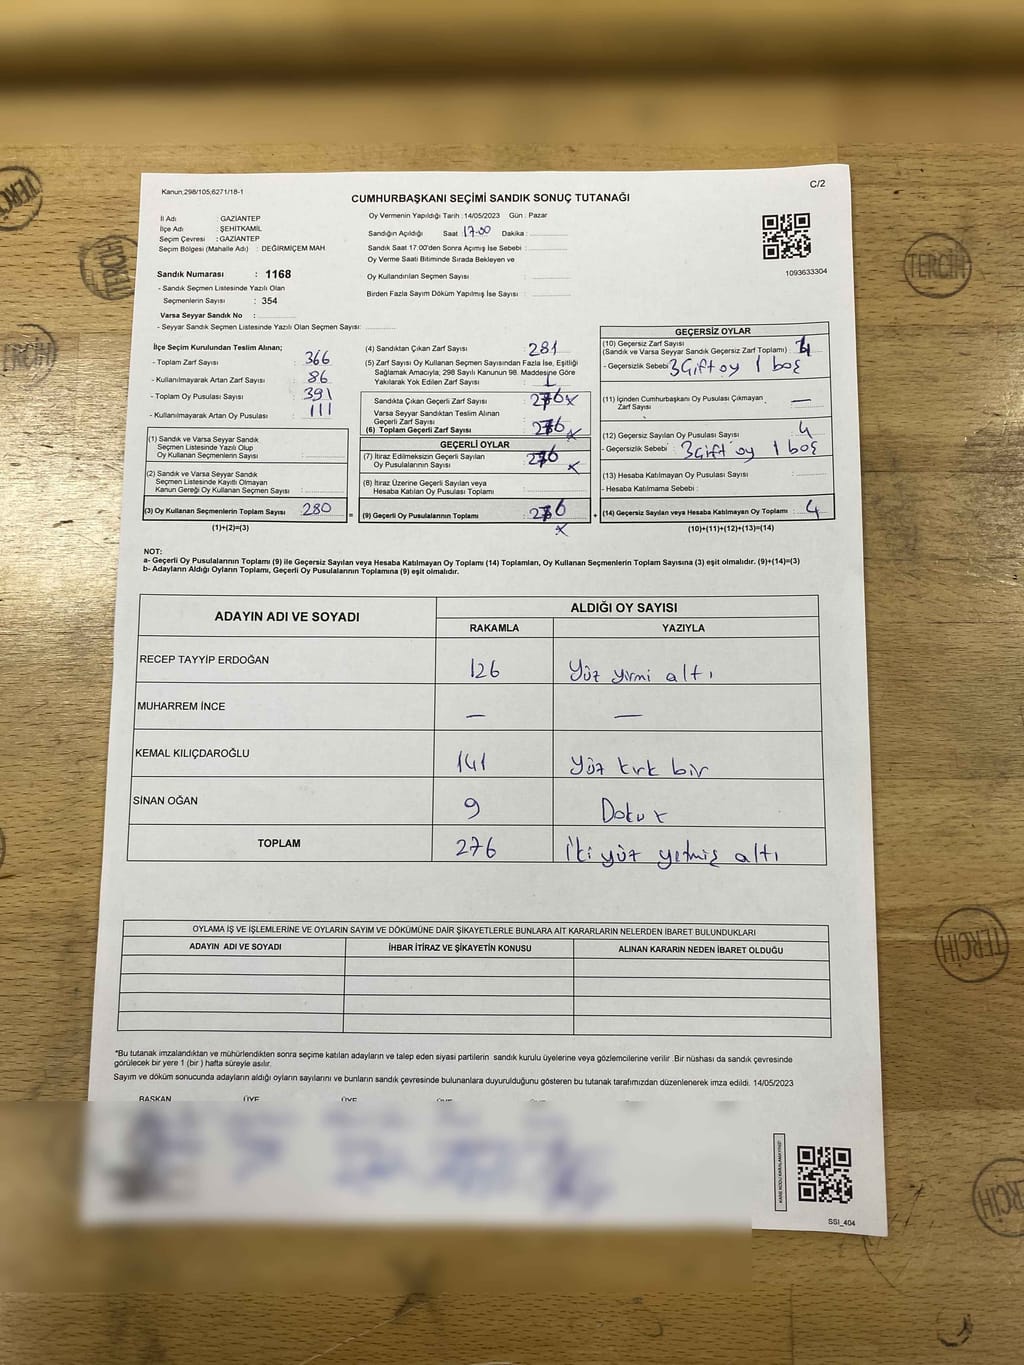 Kanun;298/105;6271/18-1
C/2
CUMHURBAŞKANI SEÇİMİ SANDIK SONUÇ TUTANAĞI
İl Adı : GAZİANTEP
İlçe Adı : ŞEHİTKAMİL
Seçim Çevresi : GAZİANTEP
Seçim Bölgesi (Mahalle Adı) : DEĞİRMİÇEM MAH
Sandık Numarası : 1168
- Sandık Seçmen Listesinde Yazılı Olan
Seçmenlerin Sayısı : 354
Varsa Seyyar Sandık No :
- Seyyar Sandık Seçmen Listesinde Yazılı Olan Seçmen Sayısı:
Oy Vermenin Yapıldığı Tarih :14/05/2023 Gün : Pazar
Sandığın Açıldığı Saat 17:00 Dakika :
Sandık Saat 17:00'den Sonra Açımış İse Sebebi :
Oy Verme Saati Bitiminde Sırada Bekleyen ve
Oy Kullandırılan Seçmen Sayısı :
Birden Fazla Sayım Döküm Yapılmış İse Sayısı :
1093633304
İlçe Seçim Kurulundan Teslim Alınan;
- Toplam Zarf Sayısı : 366
- Kullanılmayarak Artan Zarf Sayısı : 86
- Toplam Oy Pusulası Sayısı : 391
- Kullanılmayarak Artan Oy Pusulası : 111
(1) Sandık ve Varsa Seyyar Sandık
Seçmen Listesinde Yazılı Olup
Oy Kullanan Seçmenlerin Sayısı :
(2) Sandık ve Varsa Seyyar Sandık
Seçmen Listesinde Kayıtlı Olmayan
Kanun Gereği Oy Kullanan Seçmen Sayısı :
(3) Oy Kullanan Seçmenlerin Toplam Sayısı : 280
(1)+(2)=(3)
(4) Sandıktan Çıkan Zarf Sayısı : 281
(5) Zarf Sayısı Oy Kullanan Seçmen Sayısından Fazla İse, Eşitliği
Sağlamak Amacıyla; 298 Sayılı Kanunun 98. Maddesine Göre
Yakılarak Yok Edilen Zarf Sayısı : 1
Sandıkta Çıkan Geçerli Zarf Sayısı : 276 x
Varsa Seyyar Sandıktan Teslim Alınan
Geçerli Zarf Sayısı
(6) Toplam Geçerli Zarf Sayısı : 276 x
GEÇERLİ OYLAR
(7) İtiraz Edilmeksizin Geçerli Sayılan
Oy Pusulalarının Sayısı : 276 x
(8) İtiraz Üzerine Geçerli Sayılan veya
Hesaba Katılan Oy Pusulası Toplamı :
= (9) Geçerli Oy Pusulalarının Toplamı : 276 x
GEÇERSİZ OYLAR
(10) Geçersiz Zarf Sayısı
(Sandık ve Varsa Seyyar Sandık Geçersiz Zarf Toplamı) : 4
- Geçersizlik Sebebi : 3 Gift oy 1 boş
(11) İçinden Cumhurbaşkanı Oy Pusulası Çıkmayan
Zarf Sayısı : —
(12) Geçersiz Sayılan Oy Pusulası Sayısı : 4
- Geçersizlik Sebebi : 3 Gift oy 1 boş
(13) Hesaba Katılmayan Oy Pusulası Sayısı :
- Hesaba Katılmama Sebebi :
+ (14) Geçersiz Sayılan veya Hesaba Katılmayan Oy Toplamı : 4
(10)+(11)+(12)+(13)=(14)
NOT:
a- Geçerli Oy Pusulalarının Toplamı (9) ile Geçersiz Sayılan veya Hesaba Katılmayan Oy Toplamı (14) Toplamları, Oy Kullanan Seçmenlerin Toplam Sayısına (3) eşit olmalıdır. (9)+(14)=(3)
b- Adayların Aldığı Oyların Toplamı, Geçerli Oy Pusulalarının Toplamına (9) eşit olmalıdır.
ADAYIN ADI VE SOYADI ALDIĞI OY SAYISI
RAKAMLA YAZIYLA
RECEP TAYYİP ERDOĞAN 126 Yüz yirmi altı
MUHARREM İNCE — —
KEMAL KILIÇDAROĞLU 141 Yüz kırk bir
SİNAN OĞAN 9 Dokuz
TOPLAM 276 İki yüz yetmiş altı
OYLAMA İŞ VE İŞLEMLERİNE VE OYLARIN SAYIM VE DÖKÜMÜNE DAİR ŞİKAYETLERLE BUNLARA AİT KARARLARIN NELERDEN İBARET BULUNDUKLARI
ADAYIN ADI VE SOYADI İHBAR İTİRAZ VE ŞİKAYETİN KONUSU ALINAN KARARIN NEDEN İBARET OLDUĞU
*Bu tutanak imzalandıktan ve mühürlendikten sonra seçime katılan adayların ve talep eden siyasi partilerin sandık kurulu üyelerine veya gözlemcilerine verilir .Bir nüshası da sandık çevresinde
görülecek bir yere 1 (bir ) hafta süreyle asılır.
Sayım ve döküm sonucunda adayların aldığı oyların sayılarını ve bunların sandık çevresinde bulunanlara duyurulduğunu gösteren bu tutanak tarafımızdan düzenlenerek imza edildi. 14/05/2023
BAŞKAN ÜYE ÜYE ÜYE
KARE KODU KARALAMAYINIZ!
SSI_404
TERCİH
TERCİH
TERCİH
TERCİH
TERCİH
TERCİH